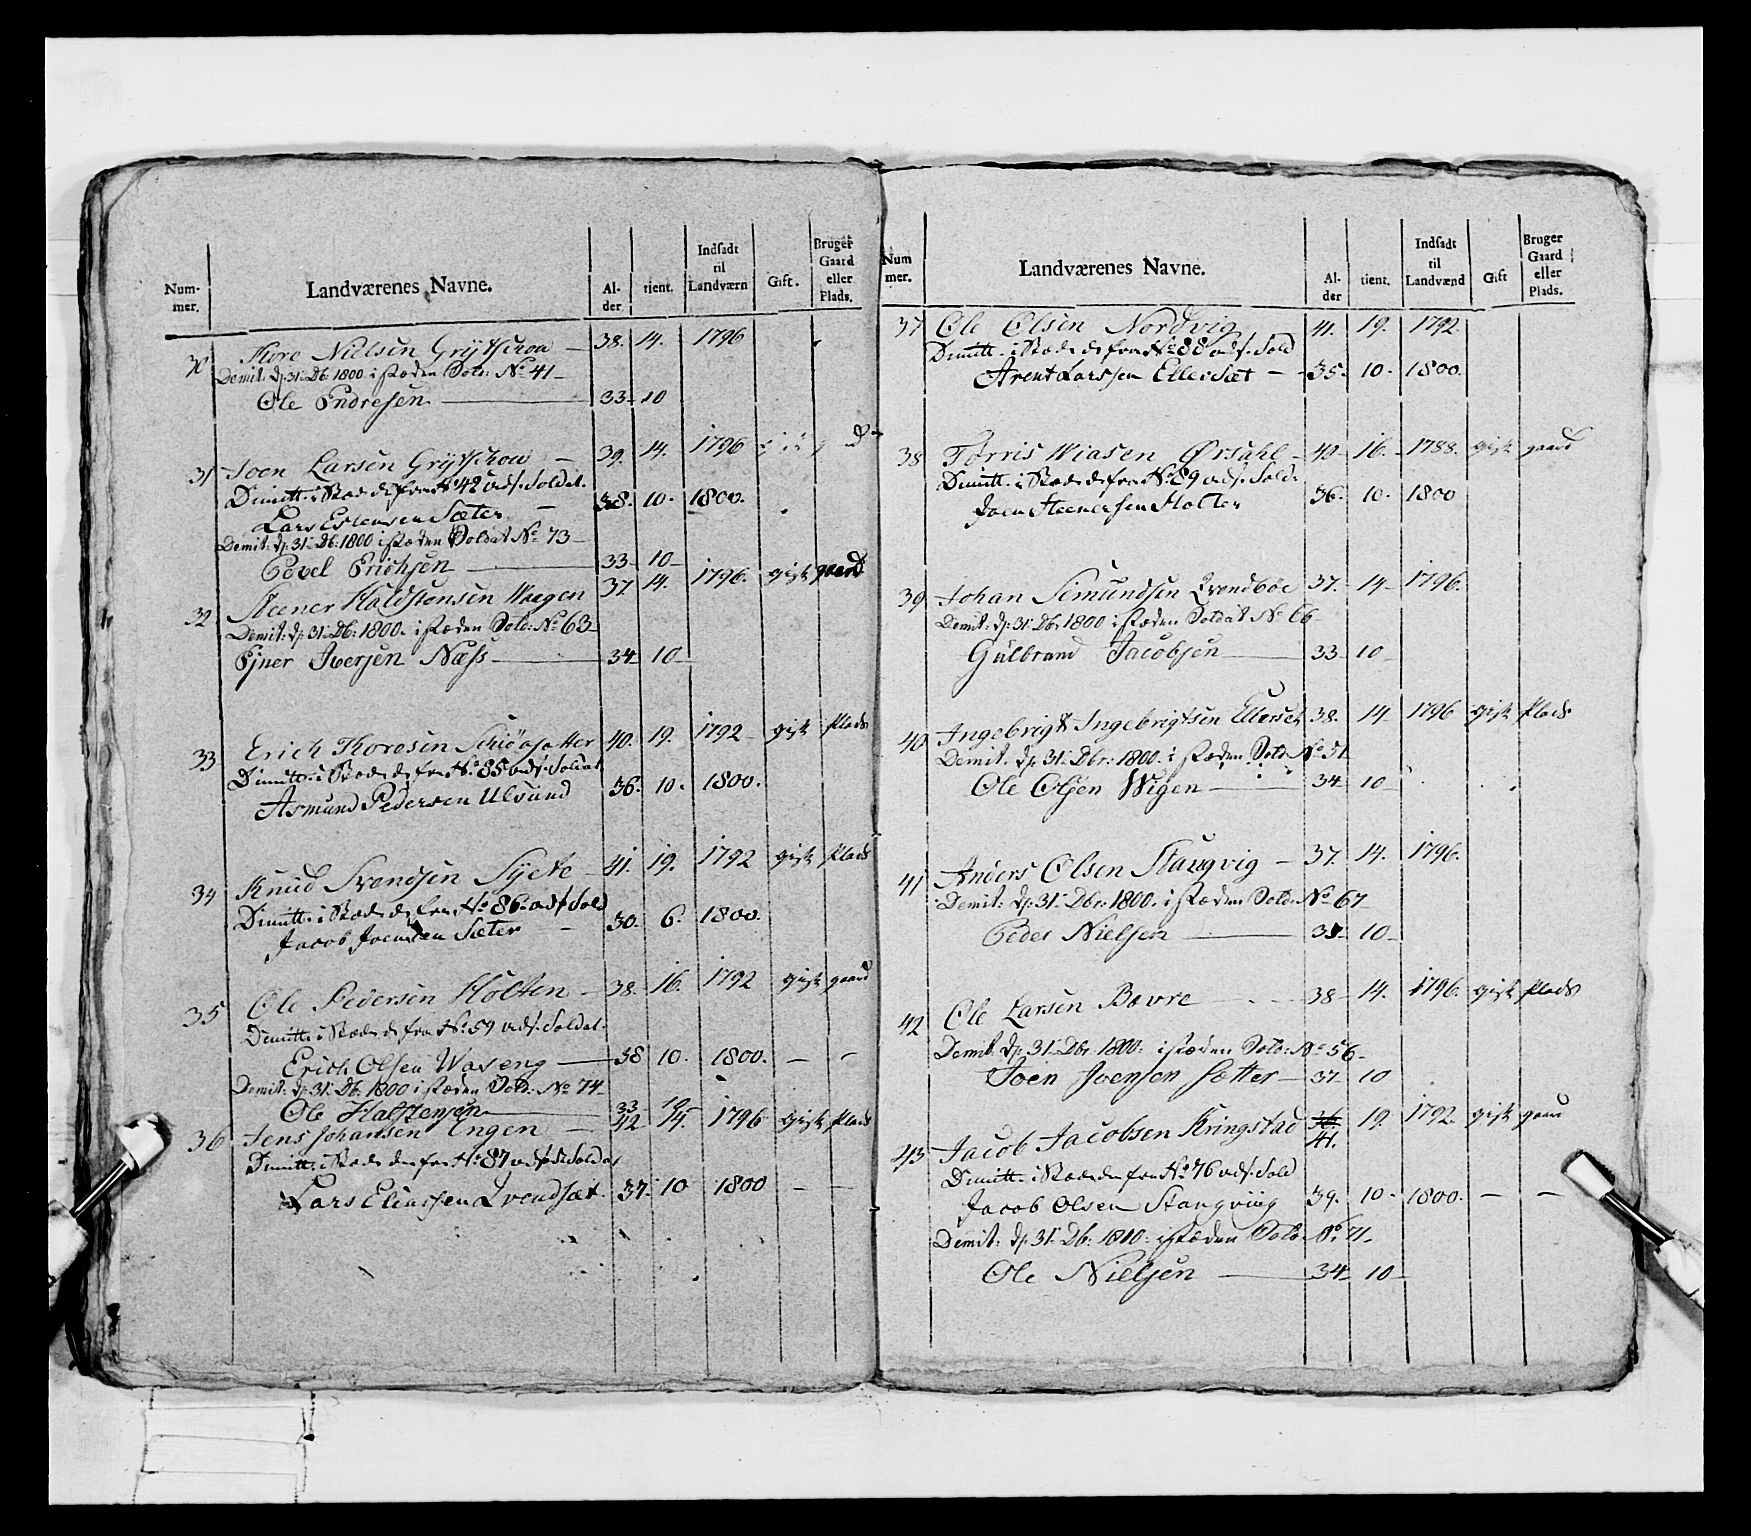 Num-
mer.
Landværenes Navne.
Al-
der
tient.
Indsadt
til
Landværn
Gift.
Bruger
Gaard
eller
Plads.
30 Thore Nielsen 38. 14. 1796
Demit: dp: 31 Db: 1800 i stæden Sold: No 41
Ole Endresen 33 10
31 Joen Larsen 39. 14. 1796
Dimitt: i Stæde fra No 42 Soldat.
Lars Estensen Sæter 38. 10. 1800.
Demit: dp: 31 Db: 1800 i stæden Soldat No 73
Povel Erichsen 33 10
32 Steener Haldstensen Waagen 37 14. 1796. gift gaard
Demit: dp: 31 Db: 1800. i stæden Sold: No 63
Ejner Iversen Næss 34 10
33 Erich Thoresen 40. 19. 1792 gift plads
Dimitt: i Stæde fra No 85 Soldat
Asmund Pedersen Ulvund 36. 10. 1800.
34 Knud Svendsen 41. 19. 1792 gift plads
Dimitt: i Stæde fra No 86 Sold
Jacob Joensen Sæter 30. 6. 1800.
35 Ole Pedersen Holten 38. 16. 1792 gift gaard
Dimitt: i Stæde fra No 59 Soldat.
Erich Olsen Waseng 38 10. 1800.
Demit: dp: 31 Db: 1800 i stæden Sold: No 74
Ole Halstensen 33 10
36 Jens Johansen Engen 42 14. 1796 gift plads
Dimitt: i Stæde fra No 87 Soldat
Lars Svendsæt. 37. 10 1800
Num
mer.
Landværenes Navne.
Al-
der
tient.
Indsadt
til
Landværnd
Gift
Bruger
Gaard
eller
Plads.
37 Ole Olsen Nordvig 41. 19. 1792
Dimitt: i Stæde fra No 88 Sold
Arent Larssen Ellevsæt 35. 10. 1800.
38 Torris 42 16. 1788. gift gaard
Dimitt: i Stæde fra No 89 Sold:
Joen Steenersen Holten 36. 10. 1800
39 Johan Simundsen 37. 14 1796.
Demit: dp: 31 Db: 1800 i stæden Soldat No 66
Gulbrand Jacobsen 33 10
40 Ingebrigt Ingebrigtsen 38. 14 1796 gift plads
Demit: dp: 31 Dbr: 1800. i stæden Sold: No 51
Ole Olsen Wigen 34 10
41 Anders Olsen Stangvig 37. 14. 1796.
Demit: dp: 31 Dbr: 1800. i stæden Sold: No 67
Peder Nielsen 10
42 Ole Larsen Bøvre 38 14. 1796. gift plads
Demit: dp: 31 Dbr: 1800. i stæden Sold: No 56
Joen Joensen Sætter 37 10
43 Jacob Jacobsen Kringstad 36. 19. 1792. gift gaard
41.
Dimitt: i Stæde fra No 76 Sold
Jacob Olsen Stangviig 39. 10. 1800.
Demit: dp: 31 Db: 1800. i stæden Sold: No. 71.
Ole Nielsen 34 10